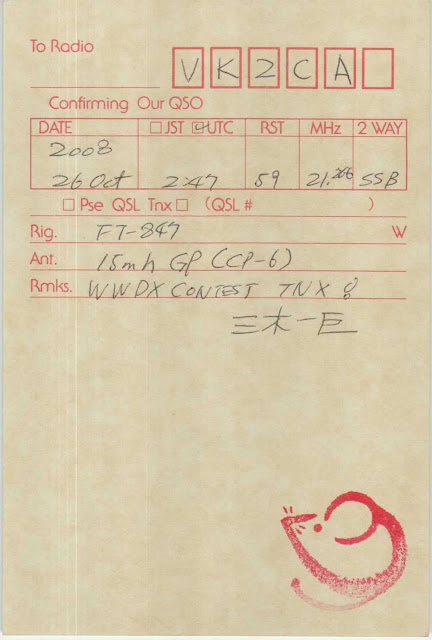 To Radio
VK2CA
Confirming Our QSO
DATE □JST ☑UTC RST MHz 2 WAY
2008
26 Oct 2:47 59 21.266 SSB
□ Pse QSL Tnx □ (QSL # )
Rig. FT-847 W
Ant. 15mh GP (CP-6)
Rmks. WWDX CONTEST TNX !
三木一巨